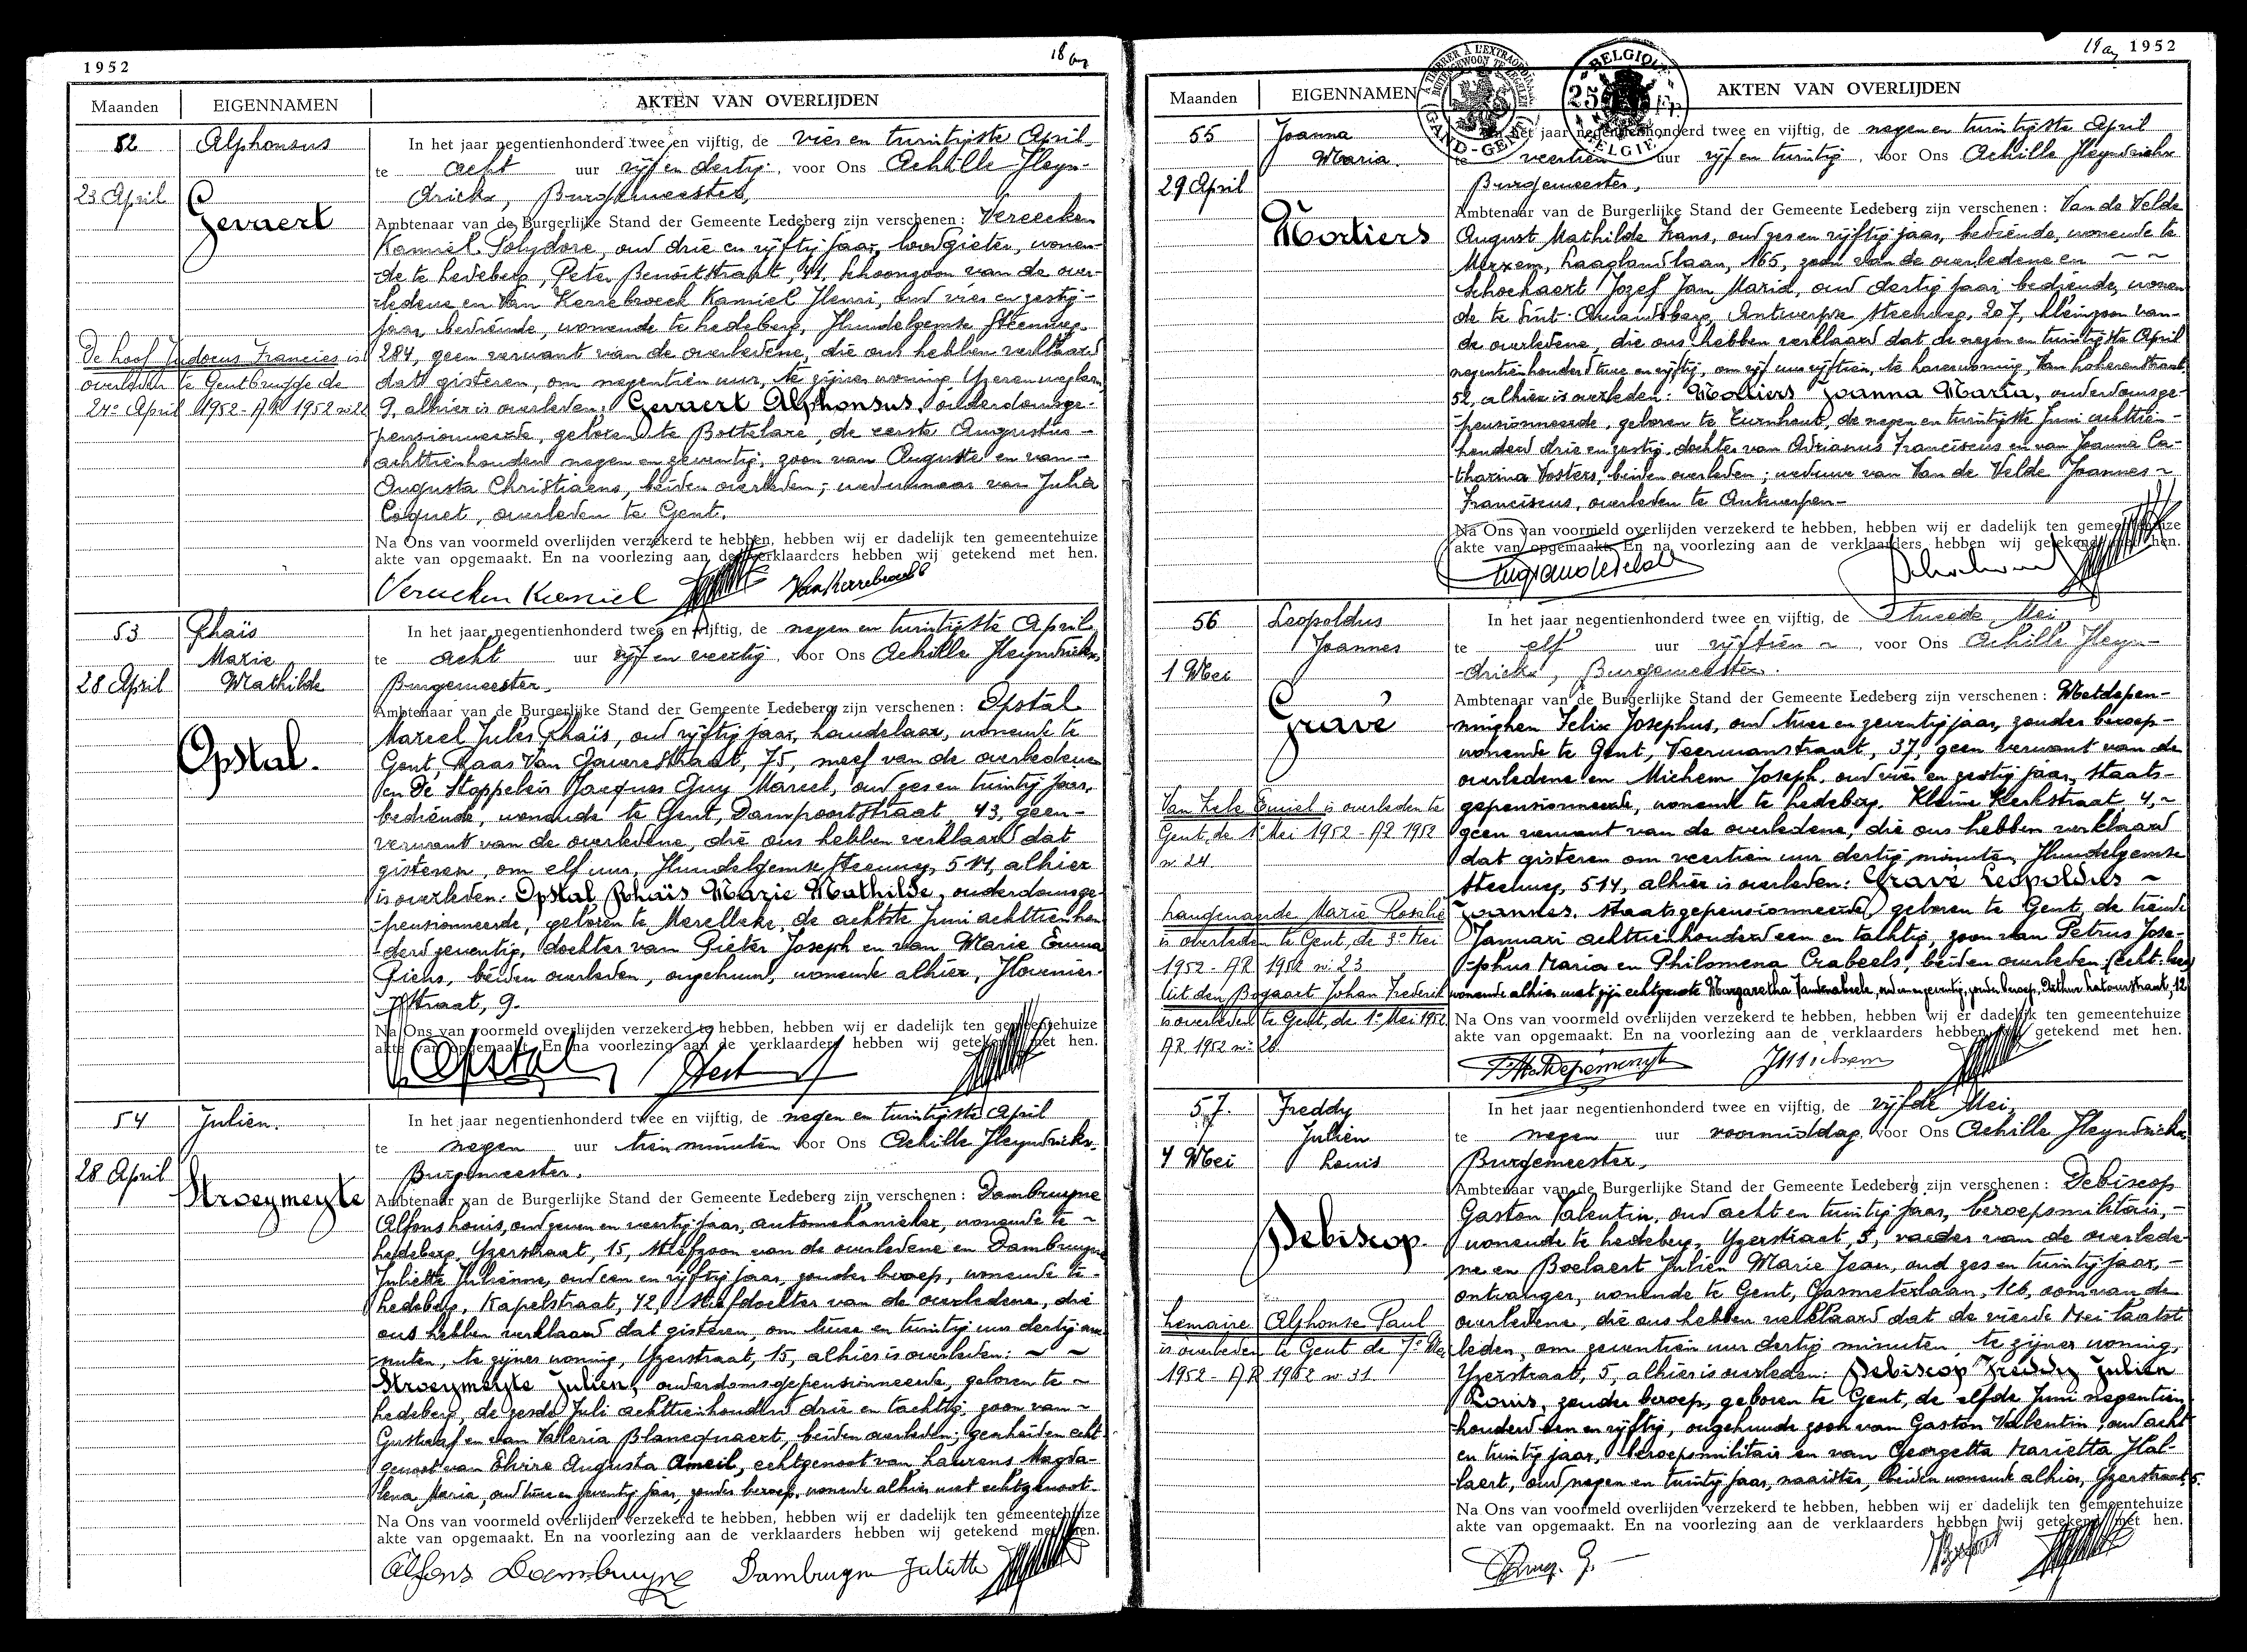 1952
18
Maanden EIGENNAMEN AKTEN VAN OVERLIJDEN
52 Alphonsus In het jaar negentienhonderd twee en vijftig, de vier en twintigste April
te acht uur vijf en dertig, voor Ons Achille Heyn-
23 April drickx, Burgemeester,
Gevaert Ambtenaar van de Burgerlijke Stand der Gemeente Ledeberg zijn verschenen: Vereecken
Kamiel Polydore, oud drie en vijftig jaar, loodgieter, wonen-
de te Ledeberg, Peter Benoitstraat, 41, schoonzoon van de over-
ledene en Van Kerrebroeck Kamiel Henri, oud vier en zestig-
jaar, bediende, wonende te Ledeberg, Hundelgemse Steenweg
De hoof Judocus Francies is 284, geen verwant van de overledene, die ons hebben verklaard
overleden te Gentbrugge de dat gisteren, om negentien uur, te zijner woning Yzerenweglaan
24e April 1952 - AR 1952 nr 22 9, alhier is overleden: Gevaert Alphonsus, ouderdomsge-
pensionneerde, geboren te Bottelare, de eerste Augustus -
achttienhonderd negen en zeventig, zoon van Auguste en van -
Augusta Christiaens, beiden overleden; weduwnaar van Julia
Coquet, overleden te Gent.
Na Ons van voormeld overlijden verzekerd te hebben, hebben wij er dadelijk ten gemeentehuize
akte van opgemaakt. En na voorlezing aan de verklaarders hebben wij getekend met hen.
Vereecken Kamiel Van Kerrebroeck
53 Thaïs In het jaar negentienhonderd twee en vijftig, de negen en twintigste April
Marie te acht uur vijf en veertig, voor Ons Achille Heyndrickx,
28 April Mathilde Burgemeester,
Opstal. Ambtenaar van de Burgerlijke Stand der Gemeente Ledeberg zijn verschenen: Opstal
Marcel Jules Thaïs, oud vijftig jaar, handelaar, wonende te
Gent, Raas Van Gaverestraat, 75, neef van de overledene
en De Stoppeleir Jacques Guy Marcel, oud zes en twintig jaar,
bediende, wonende te Gent, Dampoortstraat, 43, geen -
verwant van de overledene, die ons hebben verklaard dat
gisteren, om elf uur, Hundelgemse Steenweg, 514, alhier
is overleden: Opstal Thaïs Marie Mathilde, ouderdomsge-
pensionneerde, geboren te Merelbeke, de achtste Juni achttienhon
derd zeventig, dochter van Pieter Joseph en van Marie Emma
Piens, beiden overleden, ongehuwd, wonende alhier, Hovenier-
straat, 9.
Na Ons van voormeld overlijden verzekerd te hebben, hebben wij er dadelijk ten gemeentehuize
akte van opgemaakt. En na voorlezing aan de verklaarders hebben wij getekend met hen.
Opstal
54 Julien. In het jaar negentienhonderd twee en vijftig, de negen en twintigste April
te negen uur tien minuten voor Ons Achille Heyndrickx
28 April Burgemeester,
Stroeymeyte Ambtenaar van de Burgerlijke Stand der Gemeente Ledeberg zijn verschenen: Dambruyne
Alfons Louis, oud zeven en veertig jaar, automekanieker, wonende te ~
Ledeberg, Yzerstraat, 15, stiefzoon van de overledene en Dambruyne
Juliette Julienne, oud een en vijftig jaar, zonder beroep, wonende te -
Ledeberg, Kapelstraat, 42, stiefdochter van de overledene, die
ons hebben verklaard dat gisteren, om twee en twintig uur dertig mi-
nuten, te zijner woning, Yzerstraat, 15, alhier is overleden: ~ ~
Stroeymeyte Julien, ouderdomsgepensionneerde, geboren te ~
Ledeberg, de zesde Juli achttienhonderd drie en tachtig, zoon van ~
Gustaaf en van Valleria Blancquaert, beiden overleden; gescheiden echt
genoot van Elvire Augusta Ameil, echtgenoot van Laurens Magda-
lena Maria, oud twee en zeventig jaar, zonder beroep, wonende alhier met echtgenoot-
Na Ons van voormeld overlijden verzekerd te hebben, hebben wij er dadelijk ten gemeentehuize
akte van opgemaakt. En na voorlezing aan de verklaarders hebben wij getekend met hen.
Alfons Dambruyne Dambruyne Juliette
19 1952
Maanden EIGENNAMEN AKTEN VAN OVERLIJDEN
GAND - GENT
BELGIQUE 25 Fr. BELGIE
55 Joanna In het jaar negentienhonderd twee en vijftig, de negen en twintigste April
Maria. te veertien uur vijf en twintig, voor Ons Achille Heyndrickx
29 April Burgemeester,
Mortiers Ambtenaar van de Burgerlijke Stand der Gemeente Ledeberg zijn verschenen: Van de Velde
August Mathilde Frans, oud zes en vijftig jaar, bediende, wonende te
Merxem, Laaglandlaan, 165, zoon van de overledene en ~ ~
Schockaert Jozef Jan Maria, oud dertig jaar, bediende, wonen
de te Sint-Amandsberg, Antwerpse Steenweg, 207, kleinzoon van-
de overledene, die ons hebben verklaard dat de negen en twintigste April
negentienhonderd twee en vijftig, om vijf uur vijftien, te harer woning, Van Hoherenstraat,
52, alhier is overleden: Mortiers Joanna Maria, ouderdomsge-
pensionneerde, geboren te Turnhout, de negen en twintigste Juni achttien-
honderd drie en zestig, dochter van Adrianus Franciscus en van Joanna Ca-
tharina Vosters, beiden overleden; weduwe van Van de Velde Joannes ~
Franciscus, overleden te Antwerpen -
Na Ons van voormeld overlijden verzekerd te hebben, hebben wij er dadelijk ten gemeentehuize
akte van opgemaakt. En na voorlezing aan de verklaarders hebben wij getekend met hen.
56 Leopoldus In het jaar negentienhonderd twee en vijftig, de tweede Mei
Joannes te elf uur vijftien ~, voor Ons Achille Heyn-
1 Mei drickx, Burgemeester.
Gravé Ambtenaar van de Burgerlijke Stand der Gemeente Ledeberg zijn verschenen: Metdepen-
ninghen Felix Josephus, oud twee en zeventig jaar, zonder beroep -
wonende te Gent, Veermanstraat, 37, geen verwant van de
overledene en Michem Joseph, oud vier en zestig jaar, staats-
Van Hele Emiel is overleden te gepensionneerde, wonende te Ledeberg, Kleine Kerkstraat, 4, ~
Gent, de 1e Mei 1952 - AR 1952 geen verwant van de overledene, die ons hebben verklaard
nr 24. dat gisteren om veertien uur dertig minuten, Hundelgemse
Steenweg, 514, alhier is overleden: Gravé Leopoldus ~
Langenaerde Marie Rosalie Joannes, staatsgepensionneerde, geboren te Gent, de tiende
is overleden te Gent, de 3e Mei Januari achttienhonderd een en tachtig, zoon van Petrus Jose-
1952 - AR 1952 nr 23 phus Maria en Philomena Crabeels, beiden overleden,
Uit den Bogaart Johan Frederik wonende alhier met zijn echtgenote Margaretha Vandenabeele, zonder beroep, Arthur Latourstraat, 12
is overleden te Gent, de 1e Mei 1952 Na Ons van voormeld overlijden verzekerd te hebben, hebben wij er dadelijk ten gemeentehuize
AR 1952 nr 26. akte van opgemaakt. En na voorlezing aan de verklaarders hebben wij getekend met hen.
57. Freddy In het jaar negentienhonderd twee en vijftig, de vijfde Mei,
Julien te negen uur voormiddag, voor Ons Achille Heyndrickx
4 Mei Louis Burgemeester,
Debiscop Ambtenaar van de Burgerlijke Stand der Gemeente Ledeberg zijn verschenen: Debiscop
Gaston Valentin, oud acht en twintig jaar, beroepsmilitair, -
wonende te Ledeberg, Yzerstraat, 5, vader van de overlede-
ne en Boelaert Julien Marie Jean, oud zes en twintig jaar, -
ontvanger, wonende te Gent, Gasmeterlaan, 166, oom van de
Lemaire Alphonse Paul overledene, die ons hebben verklaard dat de vierde Mei laatst
is overleden te Gent de 7e Mei leden, om zeventien uur dertig minuten, te zijner woning,
1952 - AR 1952 nr 31 Yzerstraat, 5, alhier is overleden: Debiscop Freddy Julien
Louis, zonder beroep, geboren te Gent, de elfde Juni negentien
honderd een en vijftig, ongehuwde zoon van Gaston Valentin, oud acht
en twintig jaar, beroepsmilitair en van Georgetta Marietta Hal-
laert, oud negen en twintig jaar, naaister, beiden wonende alhier, Yzerstraat, 5.
Na Ons van voormeld overlijden verzekerd te hebben, hebben wij er dadelijk ten gemeentehuize
akte van opgemaakt. En na voorlezing aan de verklaarders hebben wij getekend met hen.